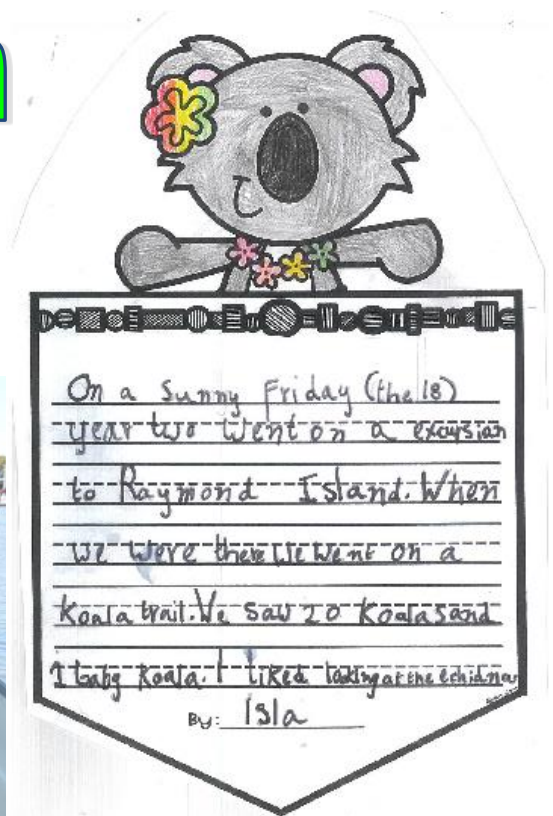 On a Sunny Friday (the 18)
year two went on a excursian
to Raymond Island. When
we were there we went on a
Koala trail. We saw 20 Koalas and
1 baby Koala. I liked looking at the echidna
By: Isla